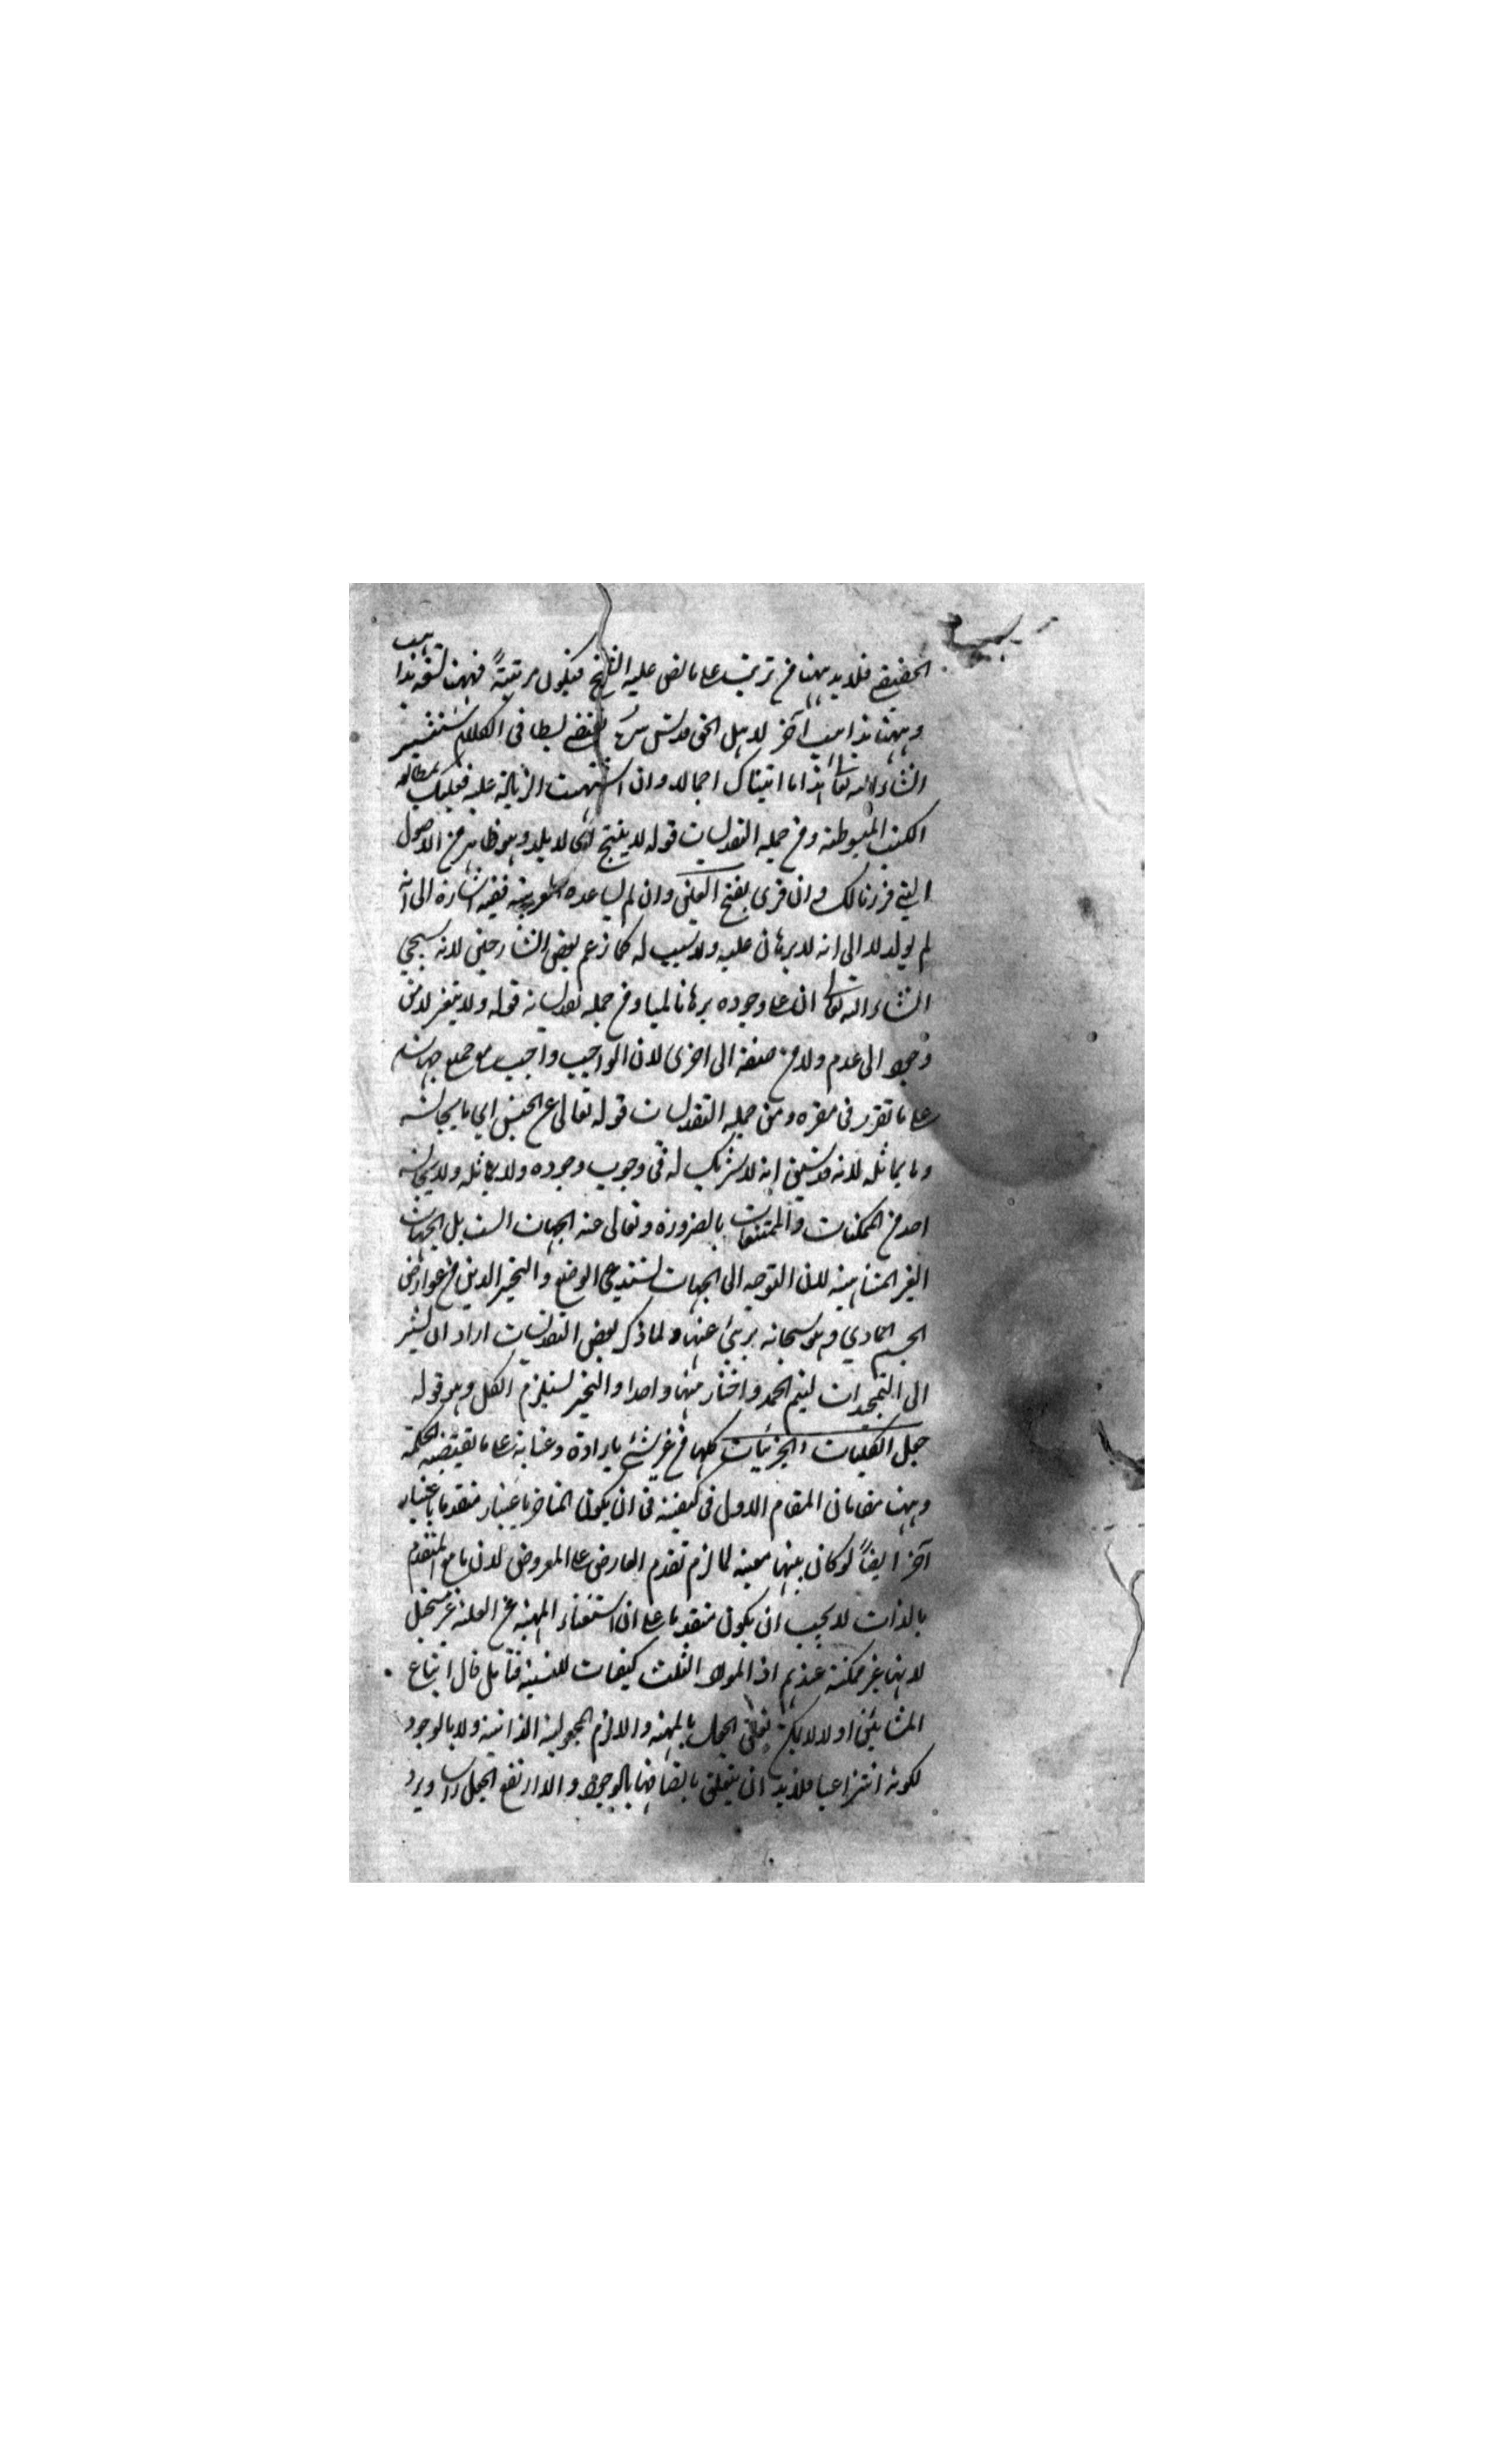 الحقيقي فلا بد ههنا من ترتيب على ما نص عليه الشيخ فيكون مرتبة فههنا تسعة مذاهب
وههنا مذاهب آخر لاهل الحق قدس سره يقتضي بسطا في الكلام ستفسير
انشاء الله تعالى هذا ما اتيناك اجمالا وان اشتهيت الزيادة عليه فعليك بمطالعة
الكتب المبسوطة ومن جملة التقديسات قوله لا ينتج اى لا يلد وهو ظاهر من الاصول
التي قررنا لك وان قرى بفتح العين وان لم يساعده ففيه اشارة الى انه
لم يولد لا الى انه لا برهان عليه ولا سبب له كما زعم بعض الشارحين لانه سيجي
انشاء الله تعالى ان على وجوده برهانا لميا ومن جملة تقديساته قوله ولا يتغير لا من
وجود الى عدم ولا من صفة الى اخرى لان الواجب واجب من جميع جهاته
على ما تقرر في مقره ومن جملة التقديسات قوله تعالى عن الجنس اي ما يجانسه
وما يماثله لانه قد تبين انه لا شريك له في وجوب وجوده ولا يماثله ولا يجانسه
احد من الممكنات والممتنعات بالضرورة وتعالى عنه الجهات الست بل الجهات
الغير المتناهية لان التوجه الى الجهات تستدعي الوضع والتحيز الذين من عوارض
الجسم المادي وهو سبحانه بريئ عنها ولما ذكر بعض التقديسات اراد ان يشير
الى التمجيدات ليتم الحمد واختار منها واحدا والتحيز يستلزم الكل وهو قوله
جعل الكليات والجزئيات كلها من غير شئ بارادة وعناية على ما تقتضيه الحكمة
وههنا مقامان المقام الاول في كيفية في ان يكون المتاخر باعتبار متقدما باعتبار
آخر ايضاً لو كان بينهما معية لما لزم تقدم العارض على المعروض لان ما مع المتقدم
بالذات لا يجب ان يكون متقدما على ان استغناء المهية عن العلة غير مستحيل
لانها غير ممكنة عندهم اذ المواد الثلث كيفيات للنسبة فتأمل قال اتباع
المشائين اولا لا يمكن تعلق الجعل بالمهية والا لزم المجعولية الذاتية ولا بالوجود
لكونه انتزاعيا فلا بد ان يتعلق باتصافها بالوجود والا ارتفع الجعل راسا ويرد